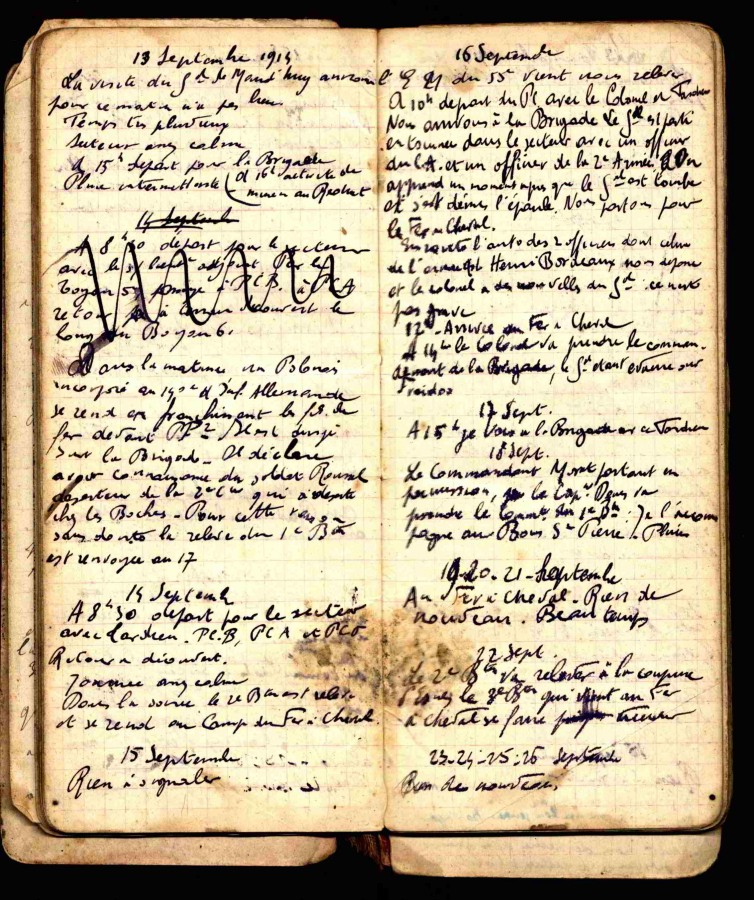 13 Septembre 191
La visite du Gal de Maud'huy annoncée
pour ce matin n'a pas lieu
Temps très pluvieux
Secteur assez calme
A 15h départ pour la Brigade
Pluie intermittente A 16h activité de
au
14 Septembre
A 8h30 départ pour le secteur
avec le adjoint Par le
boyau 5 à PCB, à PCA
retour à découvert le
long du Boyau 6.
Dans la matinée un Polonais
incorporé au d'Inf. Allemande
se rend en franchissant les fils de
fer devant PP2 Il est dirigé
sur la Brigade. Il déclare
avoir connaissance du soldat Roussel
déserteur de la 2e Cie qui a déserté
chez les Boches - Pour cette raison
sans doute la relève du 1e Bon
est renvoyée au 17
14 Septembre
A 8h30 départ pour le secteur
avec Tardieu. PCB, PCA et PC
Retour à découvert.
Journée assez calme
Dans la soirée le 2e Bon est relevé
et se rend au Camp du Fer à Cheval.
15 Septembre
Rien à signaler
16 Septembre
l'E M du 55e vient nous relever
A 10h départ du PC avec le Colonel et Tardieu
Nous arrivons à la Brigade Le Gal est parti
en tournée dans le secteur avec un officier
du CA. et un officier de la 2e Armée. On
apprend un moment après que le Gal est tombé
et s'est démis l'épaule. Nous partons pour
le Fer à Cheval.
En route l'auto des 2 officiers dont celui
de l'armée Henri Bordeaux nous dépasse
et le colonel a des nouvelles du Gal. ce n'est
pas grave
12h - Arrivée au Fer à Cheval
A 14h le Colonel va prendre le comman-
dement de la Brigade, le Gal étant évacué sur
Froidos
17 Sept.
A 15h je vais à la Brigade avec Tardieu
18 Sept.
Le Commandant partant en
permission, le Capne va
prendre le Commt du 1e Bon. Je l'accom
pagne au Bois St Pierre. - Pluie
19-20-21-Septembre
Au Fer à Cheval - Rien de
nouveau. Beau temps
22 Sept.
Le 2e Bon va relever à la coupure
le 3e Bon qui vient au Fer
à Cheval se faire
23-24-25-26 Septembre
Rien de nouveau.